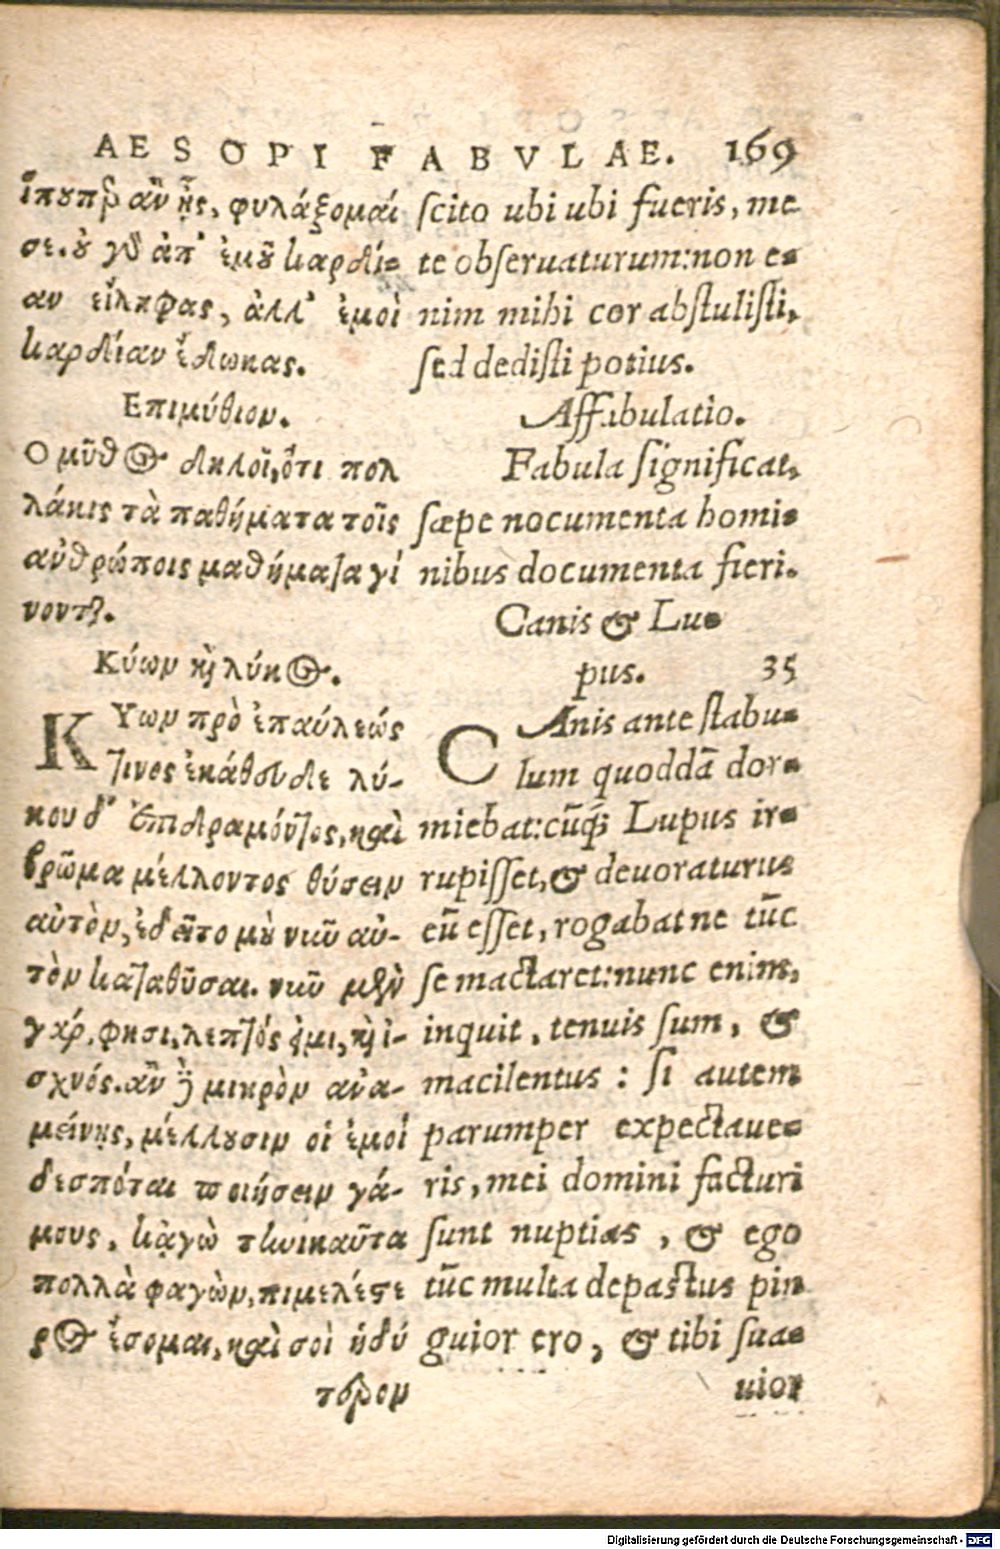 AESOPI FABVLAE. 169
ὅπουπερ ἂν ᾖς, φυλάξομαί
σε. οὐ γὰρ ἀπ' ἐμοῦ καρδί-
αν εἴληφας, ἀλλ' ἐμοὶ
καρδίαν ἔδωκας.
Επιμύθιον.
Ο μῦθος δηλοῖ, ὅτι πολ
λάκις τὰ παθήματα τοῖς
ἀνθρώποις μαθήματα γί
νονται.
Κύων καὶ λύκος.
ΚΥων πρὸ ἐπαύλεώς
τινος ἐκάθευδε λύ-
κου δ' ἐπιδραμόντος, καὶ
βρῶμα μέλλοντος θύσειν
αὐτὸν, ἐδεῖτο μὴ νῦν αὐ-
τὸν καταθῦσαι. νῦν μὲν
γὰρ, φησι, λεπτός εἰμι, καὶ ἰ-
σχνός. ἂν δὲ μικρὸν ἀνα-
μείνῃς, μέλλουσιν οἱ ἐμοὶ
δεσπόται ποιήσειν γά-
μους, κᾀγὼ τηνικαῦτα
πολλὰ φαγὼν, πιμελέστε
ρος ἔσομαι, καὶ σοὶ ἡδύ
τερον
scito ubi ubi fueris, me
te obseruaturum: non e-
nim mihi cor abstulisti,
sed dedisti potius.
Affabulatio.
Fabula significat,
sæpe nocumenta homi-
nibus documenta fieri.
Canis & Lu-
pus. 35
CAnis ante stabu-
lum quoddā dor-
miebat: cūq; Lupus ir-
rupisset, & deuoraturus
eū esset, rogabat ne tūc
se mactaret: nunc enim,
inquit, tenuis sum, &
macilentus: si autem
parumper expectaue-
ris, mei domini facturi
sunt nuptias, & ego
tūc multa depastus pin
guior ero, & tibi sua-
uior
Digitalisierung gefördert durch die Deutsche Forschungsgemeinschaft - DFG